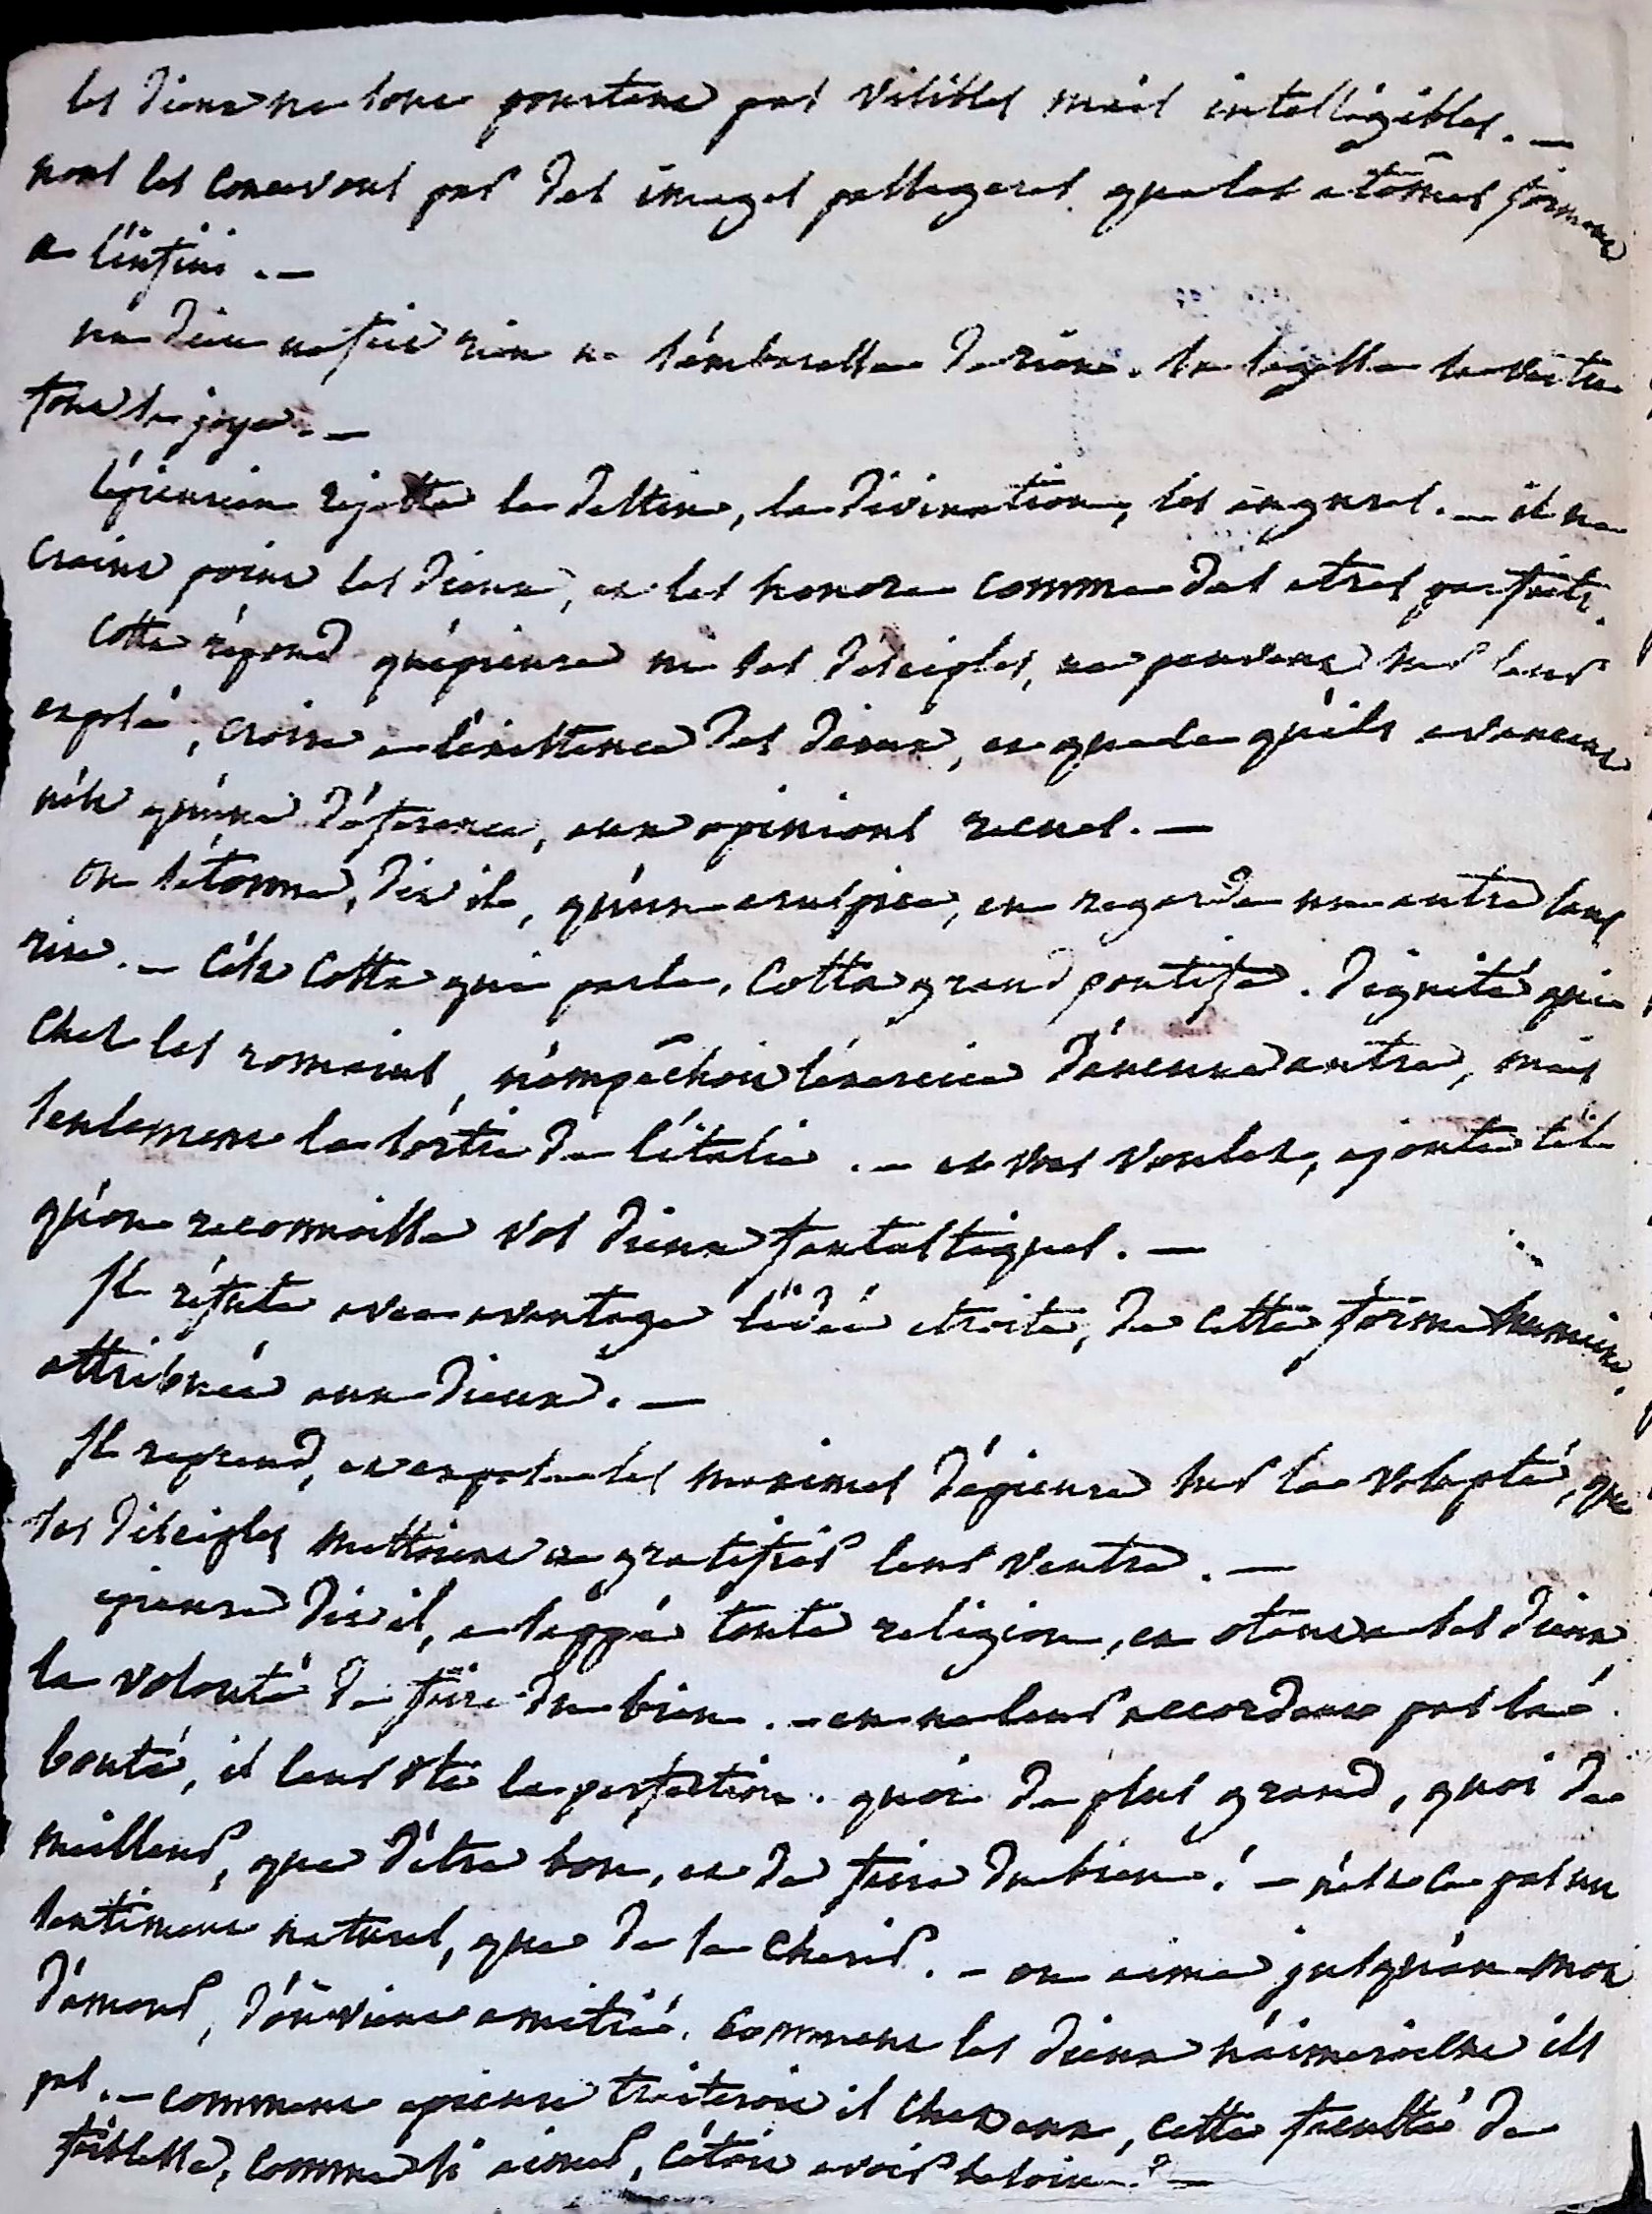 les dieux ne sont pourtant pas visibles mais intelligibles. —
nous les concevons par des images passageres que les atômes forment
a l'infini. —
un dieu ne fait rien ne s'embarasse de rien. sa sagesse sa vertu
font sa joye. —
l'épicurien rejette le destin, la divination, les augures. — il ne
craint point les dieux, et les honore comme des etres parfaits.
Cotta répond qu'épicure ni ses disciples, ne peuvent sur leur
exposé, croire a l'existence des dieux, et que ce qu'ils avancent
n'est qu'une déférence, aux opinions recues. —
on s'étonne, dit il, qu'un aruspice, en regarde un autre sans
rire. — c'est Cotta qui parle, Cotta grand pontife. dignité qui
chez les romains, n'empêchoit l'exercice d'aucune autre, mais
seulement la sortie de l'italie. — et vous voulez, ajoute t'il
qu'on reconnoisse vos dieux fantastiques. —
Il réfute avec avantage l'idée etroite, de cette forme humaine,
attribuée aux dieux. —
Il reprend, et expose les maximes d'épicure sur la volupté, que
ses disciples mettoient a gratifier leur ventre. —
epicure dit il, a sappé toute religion, en otant a ses dieux
la volonté de faire du bien. — en ne leur accordant pas la
bonté, il leur ôte la perfection. quoi de plus grand, quoi de
meilleur, que d'être bon, et de faire du bien! — n'est ce pas un
sentiment naturel, que de se cherir. — on aime jusqu'au mot
d'amour, d'où vient amitié. comment les dieux n'aimeroient ils
pas. — comment epicure traiteroit il chez eux, cette faculté de
foiblesse, comme si aimer, c'étoit avoir besoin? —